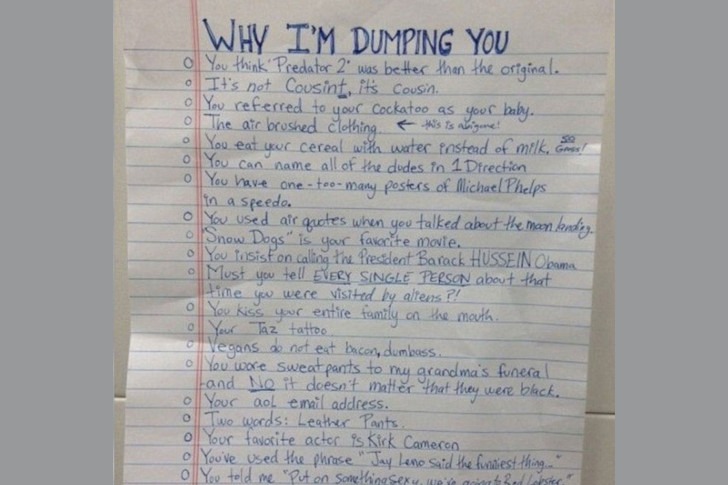 WHY I'M DUMPING YOU
You think "Predator 2" was better than the original.
It's not Cousint, it's cousin.
You referred to your cockatoo as your baby.
The air brushed clothing. ← this is
You eat your cereal with water instead of milk. SO GROSS!
You can name all of the dudes in 1 Direction
You have one-too-many posters of Michael Phelps
in a speedo.
You used air quotes when you talked about the moon landing.
"Snow Dogs" is your favorite movie.
You insist on calling the President Barack HUSSEIN Obama
Must you tell EVERY SINGLE PERSON about that
time you were visited by aliens?!
You kiss your entire family on the mouth.
Your Taz tattoo
Vegans do not eat bacon, dumbass.
You wore sweatpants to my grandma's funeral
-and NO it doesn't matter that they were black.
Your aol email address.
Two words: Leather Pants.
Your favorite actor is Kirk Cameron
You've used the phrase "Jay Leno said the funniest thing..."
You told me "Put on something sexy, we're going to Red Lobster."